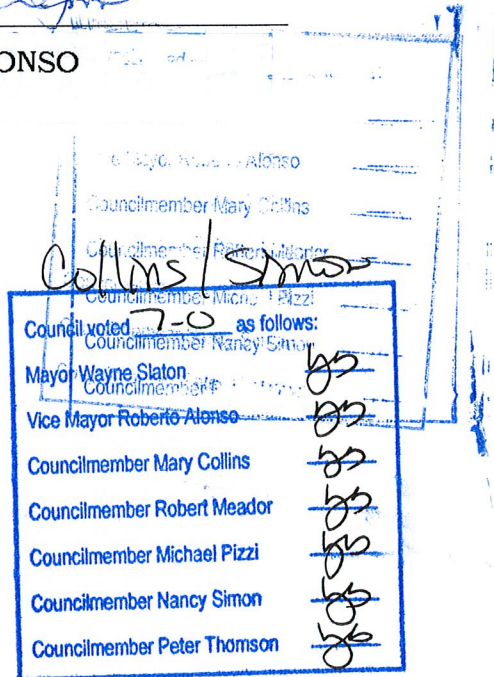 ONSO
Alonso
Councilmember Mary Collins
Councilmember Robert Meador
Collins / Simon
Councilmember Pizzi
Council voted 7-0 as follows:
Councilmember Nancy Simon
Mayor Wayne Slaton yes
Councilmember
Vice Mayor Roberto Alonso yes
Councilmember Mary Collins yes
Councilmember Robert Meador yes
Councilmember Michael Pizzi yes
Councilmember Nancy Simon yes
Councilmember Peter Thomson yes